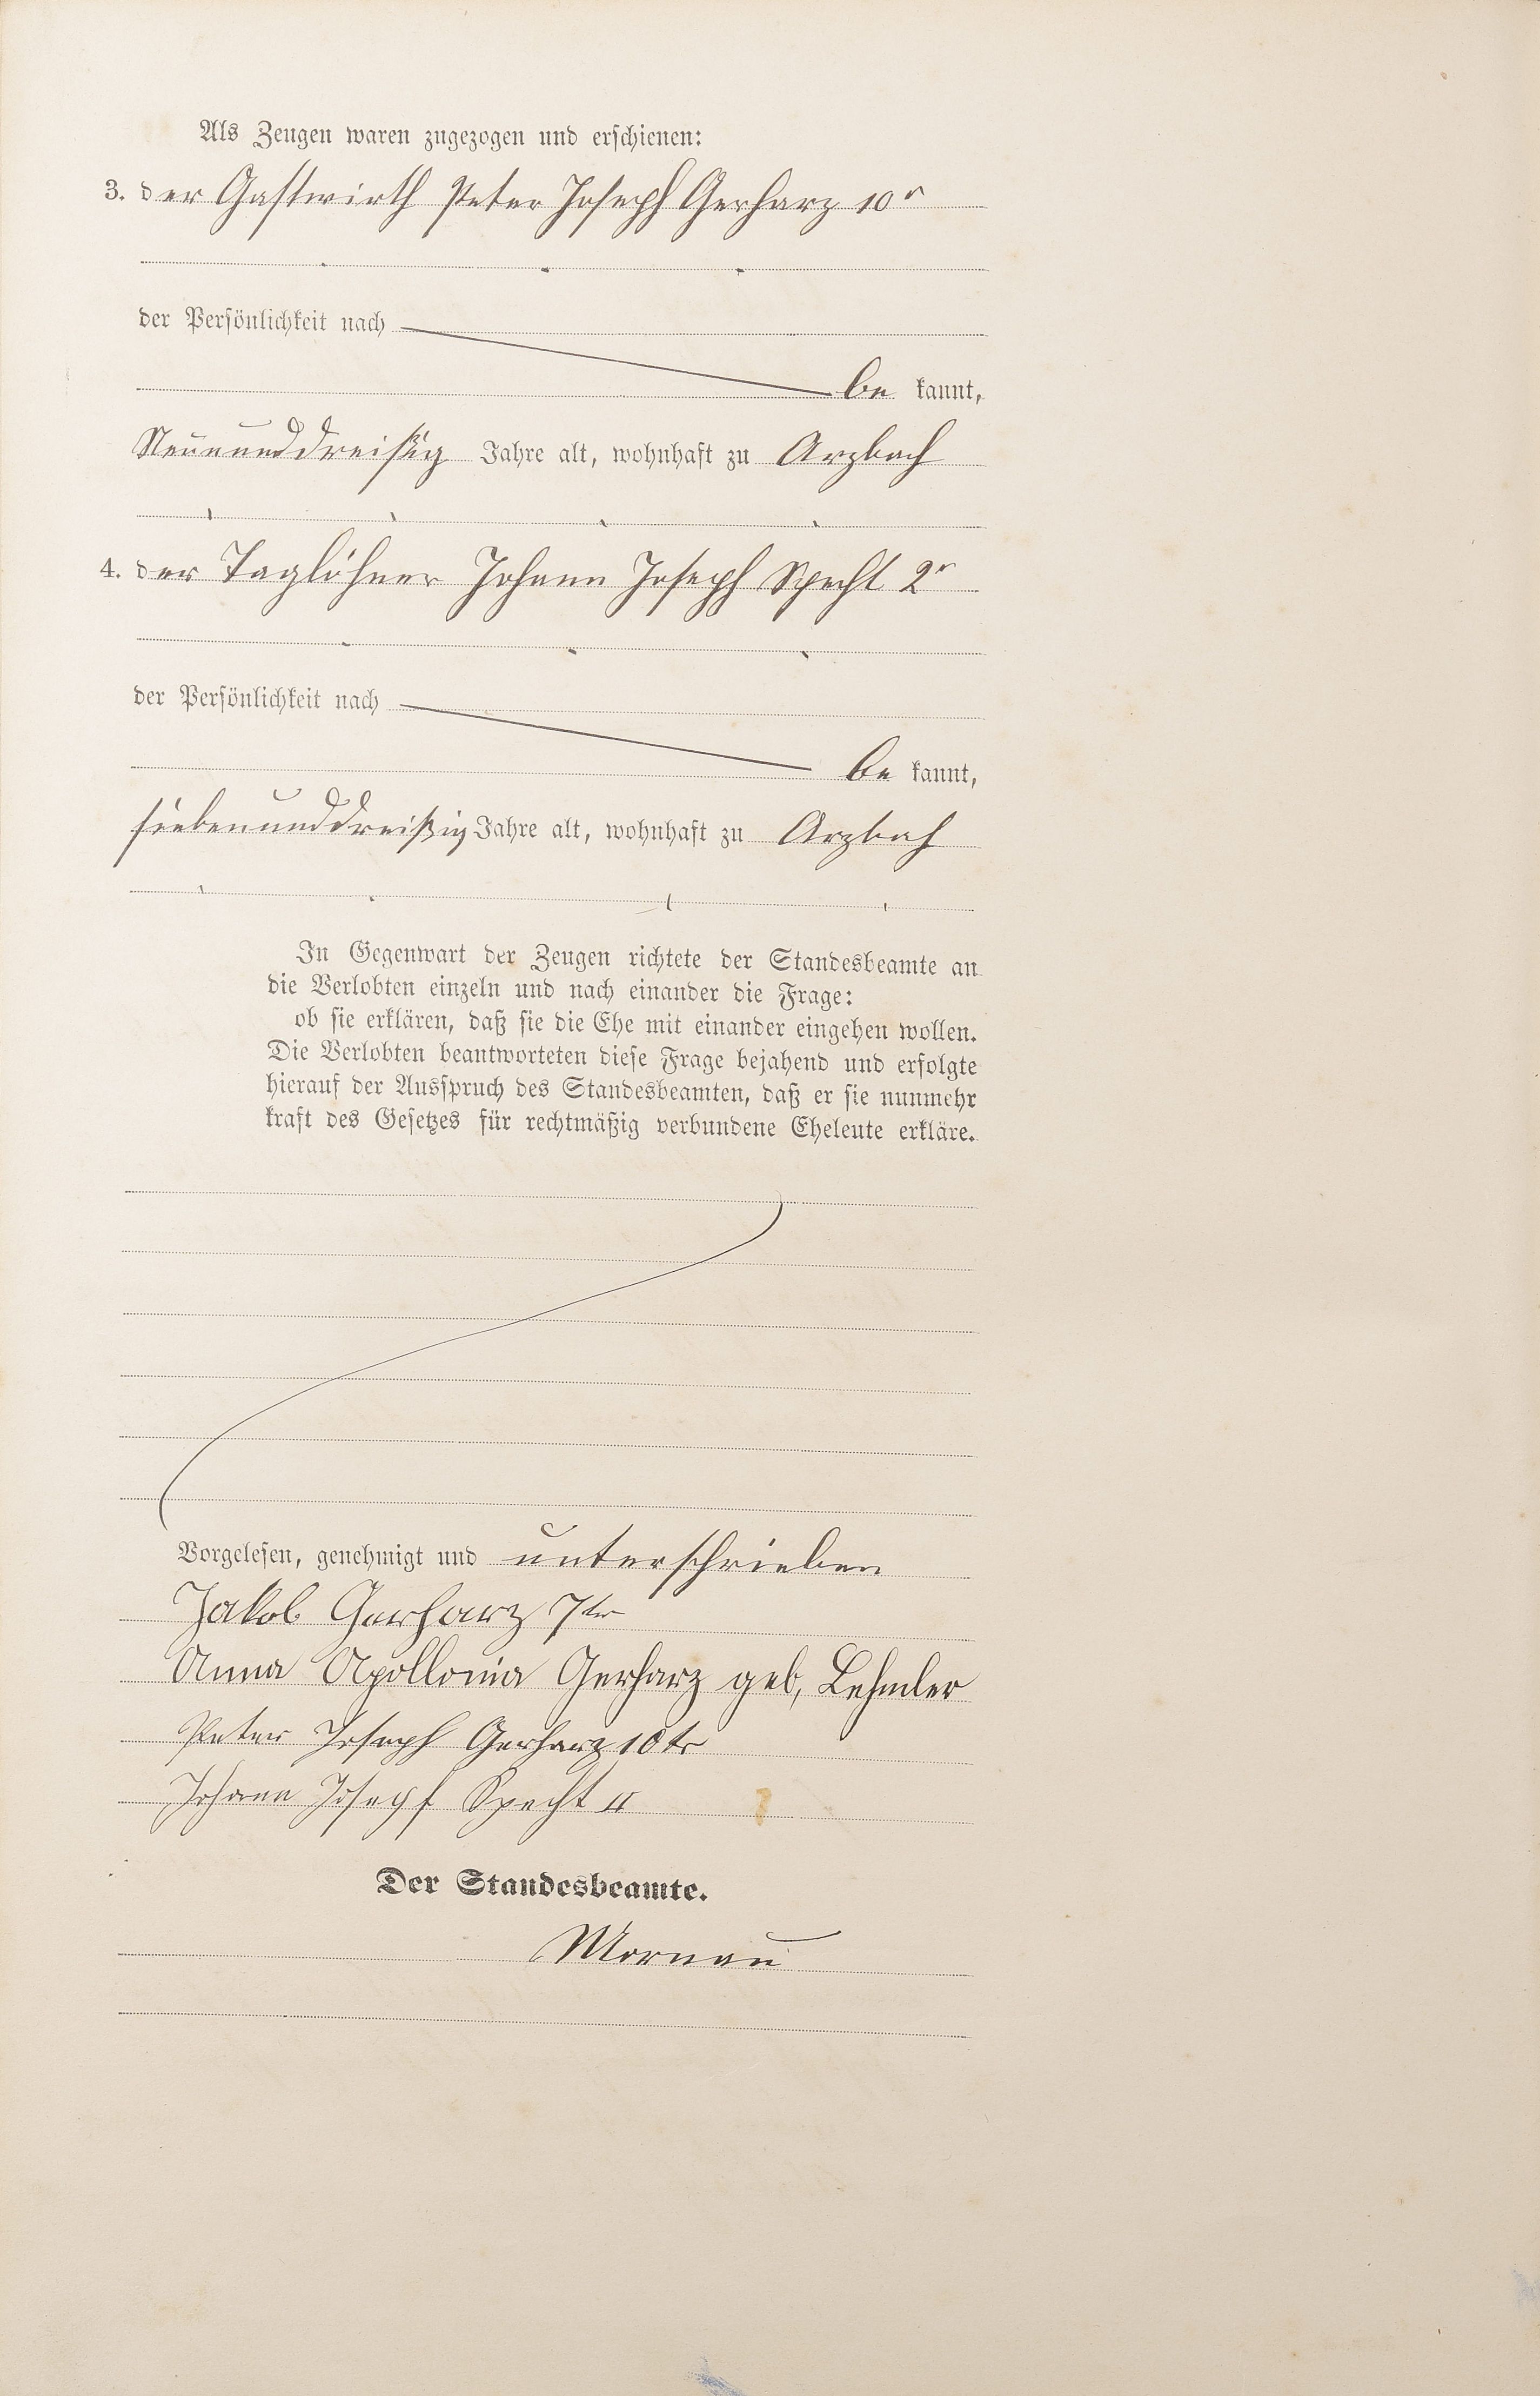 Als Zeugen waren zugezogen und erschienen:
3. der Gastwirth Peter Joseph Gerharz 10r
der Persönlichkeit nach
be kannt,
Neununddreißig Jahre alt, wohnhaft zu Arzbach
4. der Taglöhner Johann Joseph Specht 2r
der Persönlichkeit nach
be kannt,
siebenunddreißig Jahre alt, wohnhaft zu Arzbach
In Gegenwart der Zeugen richtete der Standesbeamte an
die Verlobten einzeln und nach einander die Frage:
ob sie erklären, daß sie die Ehe mit einander eingehen wollen.
Die Verlobten beantworteten diese Frage bejahend und erfolgte
hierauf der Ausspruch des Standesbeamten, daß er sie nunmehr
kraft des Gesetzes für rechtmäßig verbundene Eheleute erkläre.
Vorgelesen, genehmigt und unterschrieben
Jakob Gerharz 7tr
Anna Apollonia Gerharz geb, Lehmler
Peter Joseph Gerharz 10tr
Johann Josepf Specht II
Der Standesbeamte.
Mornau